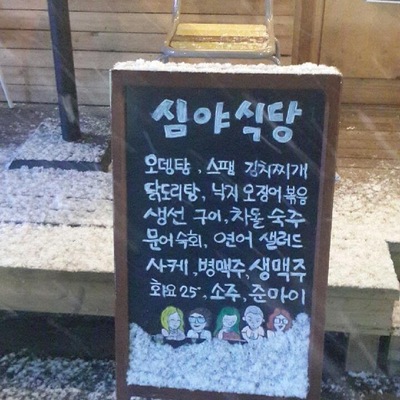 심야식당
오뎅탕, 스팸 김치찌개
닭도리탕, 낙지 오징어 볶음
생선 구이, 차돌 숙주
문어 숙회, 연어 샐러드
사케, 병맥주, 생맥주
화요 25°, 소주, 준마이